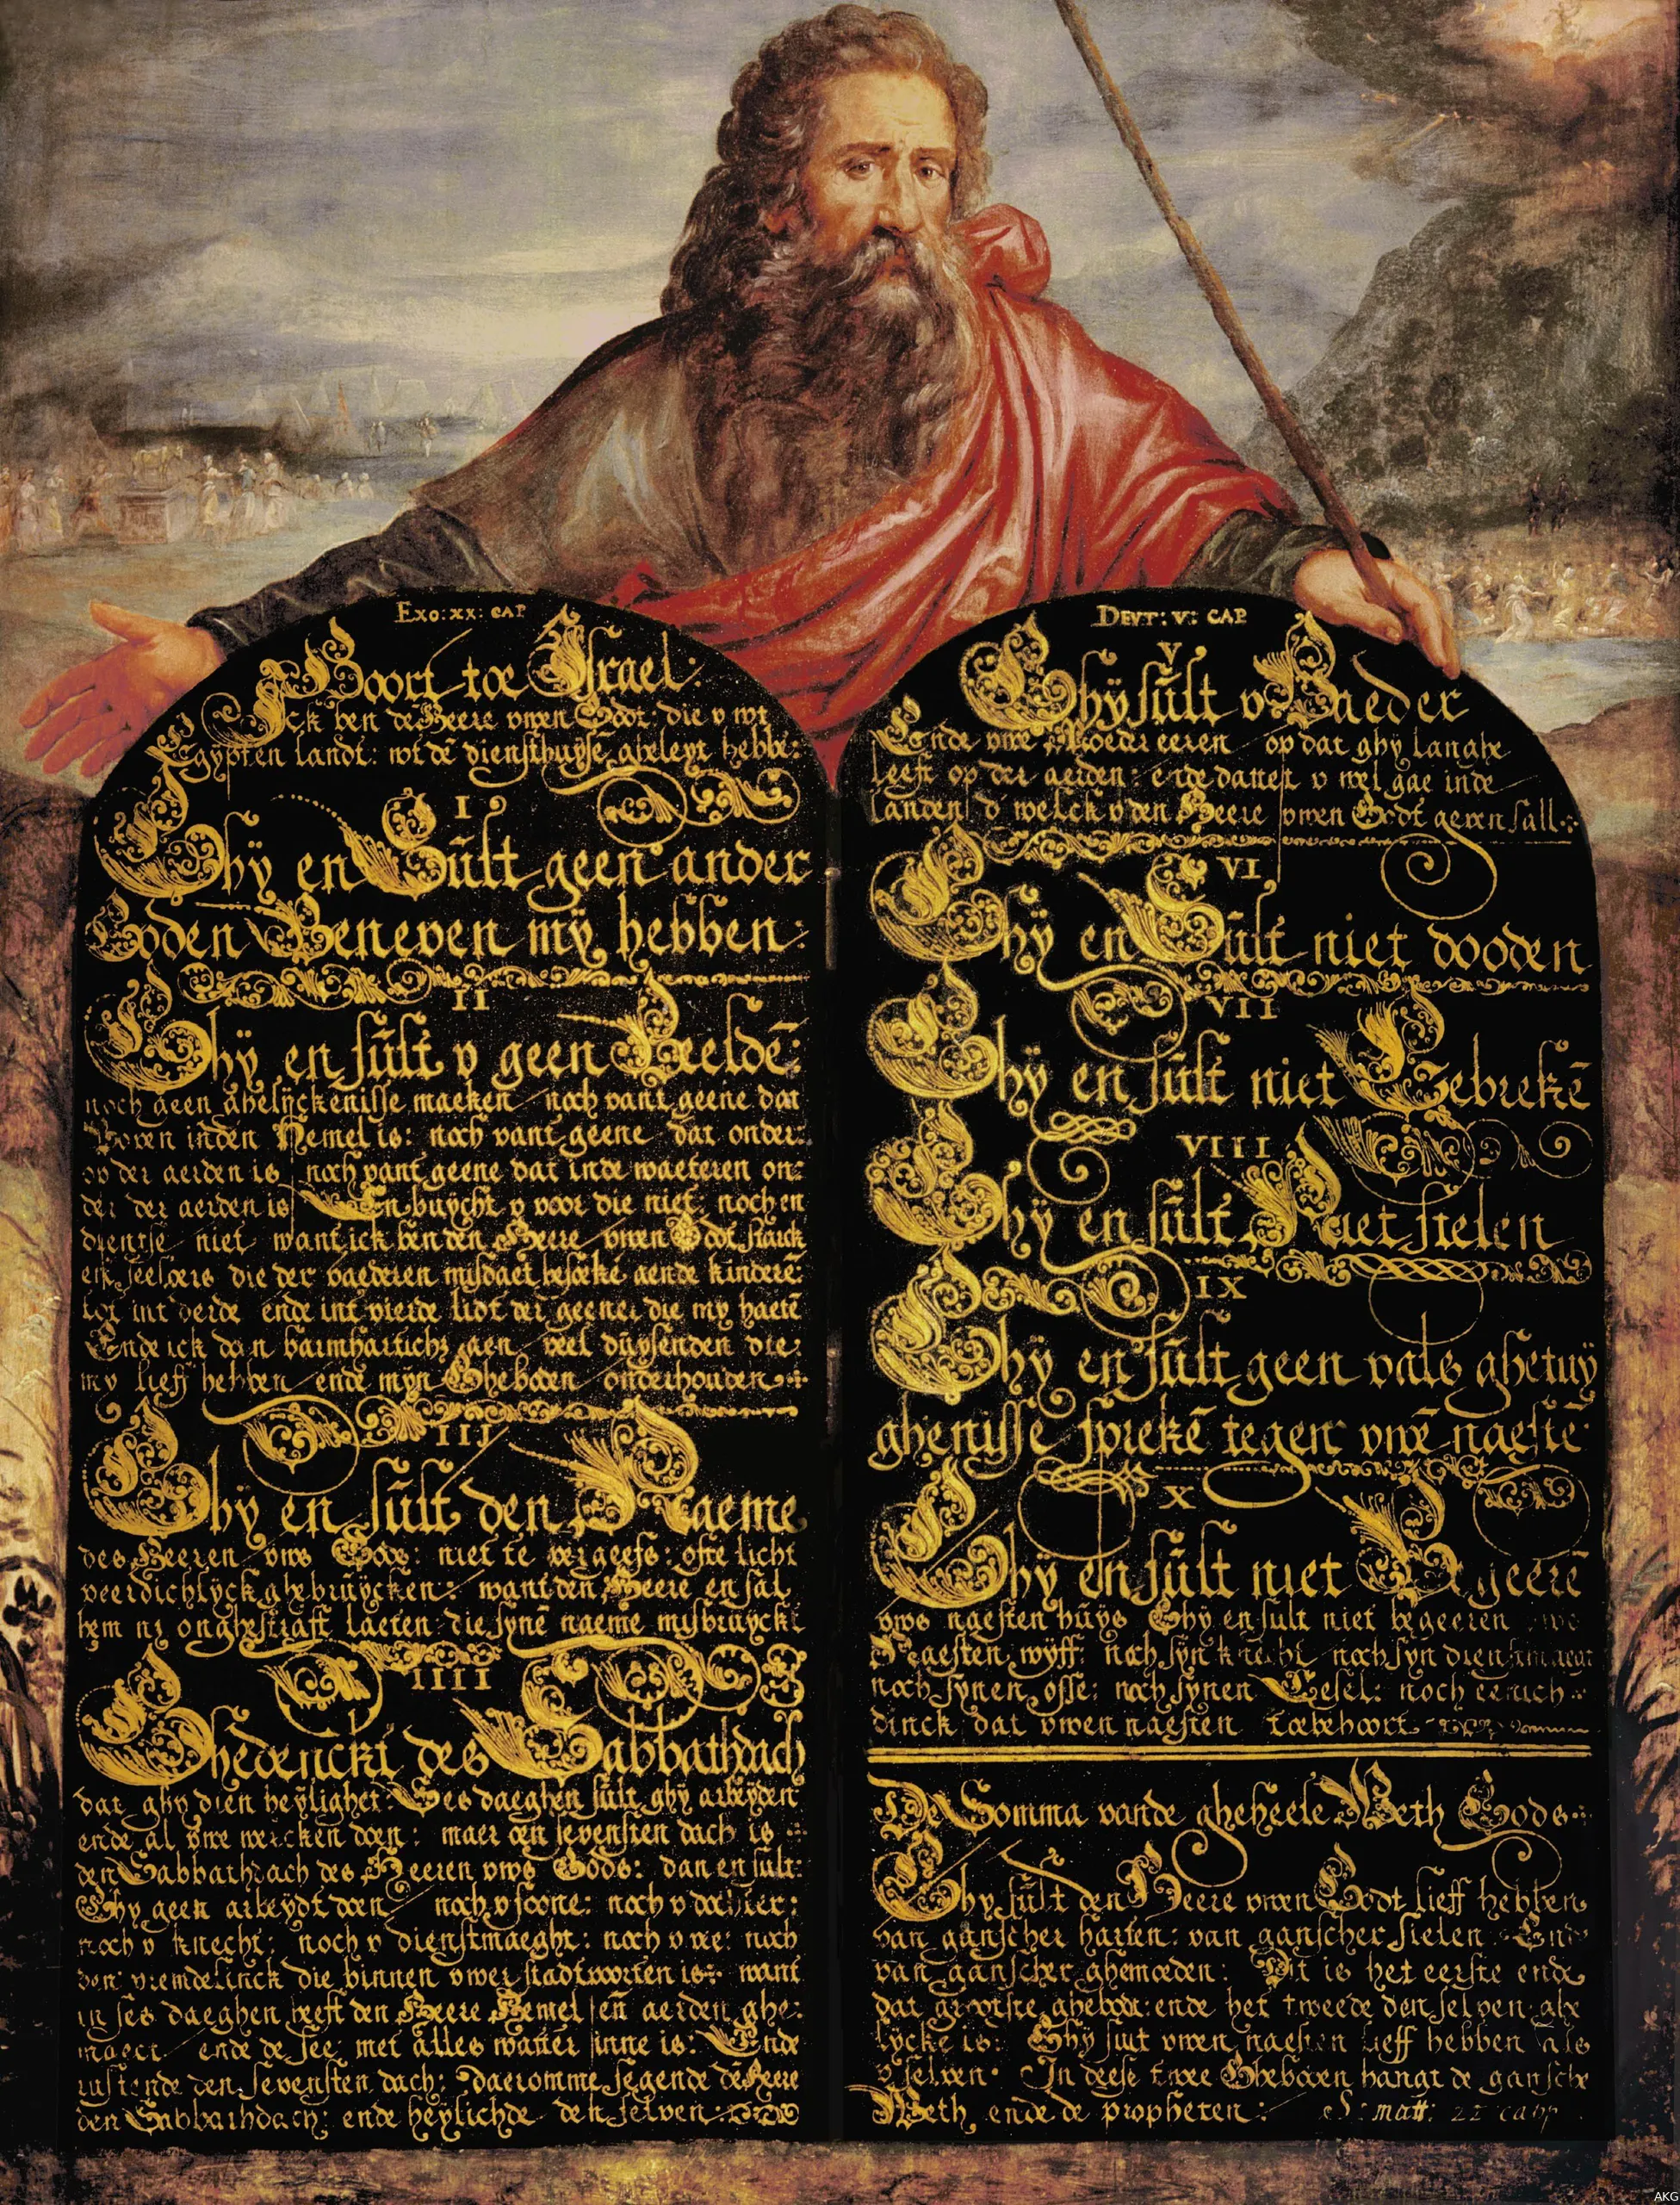 EXO: XX: CAP
Hoort toe Israel:
Ick ben de Heere uwen Godt: die u wt
Egypten landt: wt dē diensthuyse gheleyt hebbe:
I
Ghÿ en Sült geen ander
Goden Beneven mÿ hebben:
II
Ghÿ en sült v geen Beeldē:
noch geen ghelijckenisse maeken noch vant geene dat
Boven inden Hemel is: noch vant geene dat onder
op der aerden is noch vant geene dat inde waeteren on:
der der aerden is En buycht v voor die niet noch en
dientse niet want ick ben den Heere uwen Godt starck
die der vaederen misdaet besoekē aende kinderē:
tot int derde ende int vierde lidt der geener die my haetē
Ende ick doen barmharticheÿ aen veel düysenden die:
my lieff hebben ende mÿn Gheboden onderhouden
III
Ghÿ en sült den Naeme
des Heeren uws Gods: niet te vergeefs: ofte licht
veerdichlÿck ghebruÿcken: want den Heere en sal
hem niet onghestrafft laeten die synē naeme misbruyckt
IIII
Ghedenckt des Sabbathdach
dat ghy dien heÿlighet: Ses daeghen sült ghy arbeÿden
ende al uwe wercken doen: maer den sevensten dach is
den Sabbathdach des Heeren uws Gods: dan en sült:
Ghy geen arbeÿdt doen noch v soone: noch v dochter:
noch v knecht: noch v dienstmaeght: noch v vee: noch
den vremdelinck die binnen uwer stadtpoorten is: want
in ses daeghen heeft den Heere Hemel en aerden ghe:
maect ende de See met alles watter inne is: Ende
rustende den sevensten dach: daeromme segende dē Heere
den Sabbathdach: ende heÿlichde den selven:
DEVT: V: CAP
V
Ghÿ sült v Vaeder
Ende uwe Moeder eeren op dat ghÿ langhe
leeft op der aerden: ende dattet v wel gae inde
landen d welck v den Heere uwen Godt geven sall:
VI
Ghÿ en Sült niet dooden
VII
Ghÿ en sült niet Eebrekē
VIII
Ghÿ en sült Niet stelen
IX
Ghÿ en sült geen vals ghetuÿ
ghenisse sprekē tegen uwē naestē
X
Ghÿ en sült niet Begeerē
uws naesten hüÿs Ghÿ en sult niet begeeren uws
Naesten wÿff: noch sÿn knecht noch sÿn dienstmaegt
noch sÿnen osse: noch sÿnen Eesel: noch eenich
dinck dat uwen naesten toebehoort
De Somma vande gheheele Weth Gods:
Ghy sült den Heere uwen Godt lieff hebben
van ganscher harten: van ganscher sielen Ende
van ganscher ghemoeden: Dit is het eerste ende
dat grootste ghebodt: ende het tweede den selven ghe
lÿcke is: Ghÿ sult uwen naesten lieff hebben als
v selven. In deese twee Gheboden hangt de gansche
Weth ende de propheten: S: matt: 22 cap
AKG